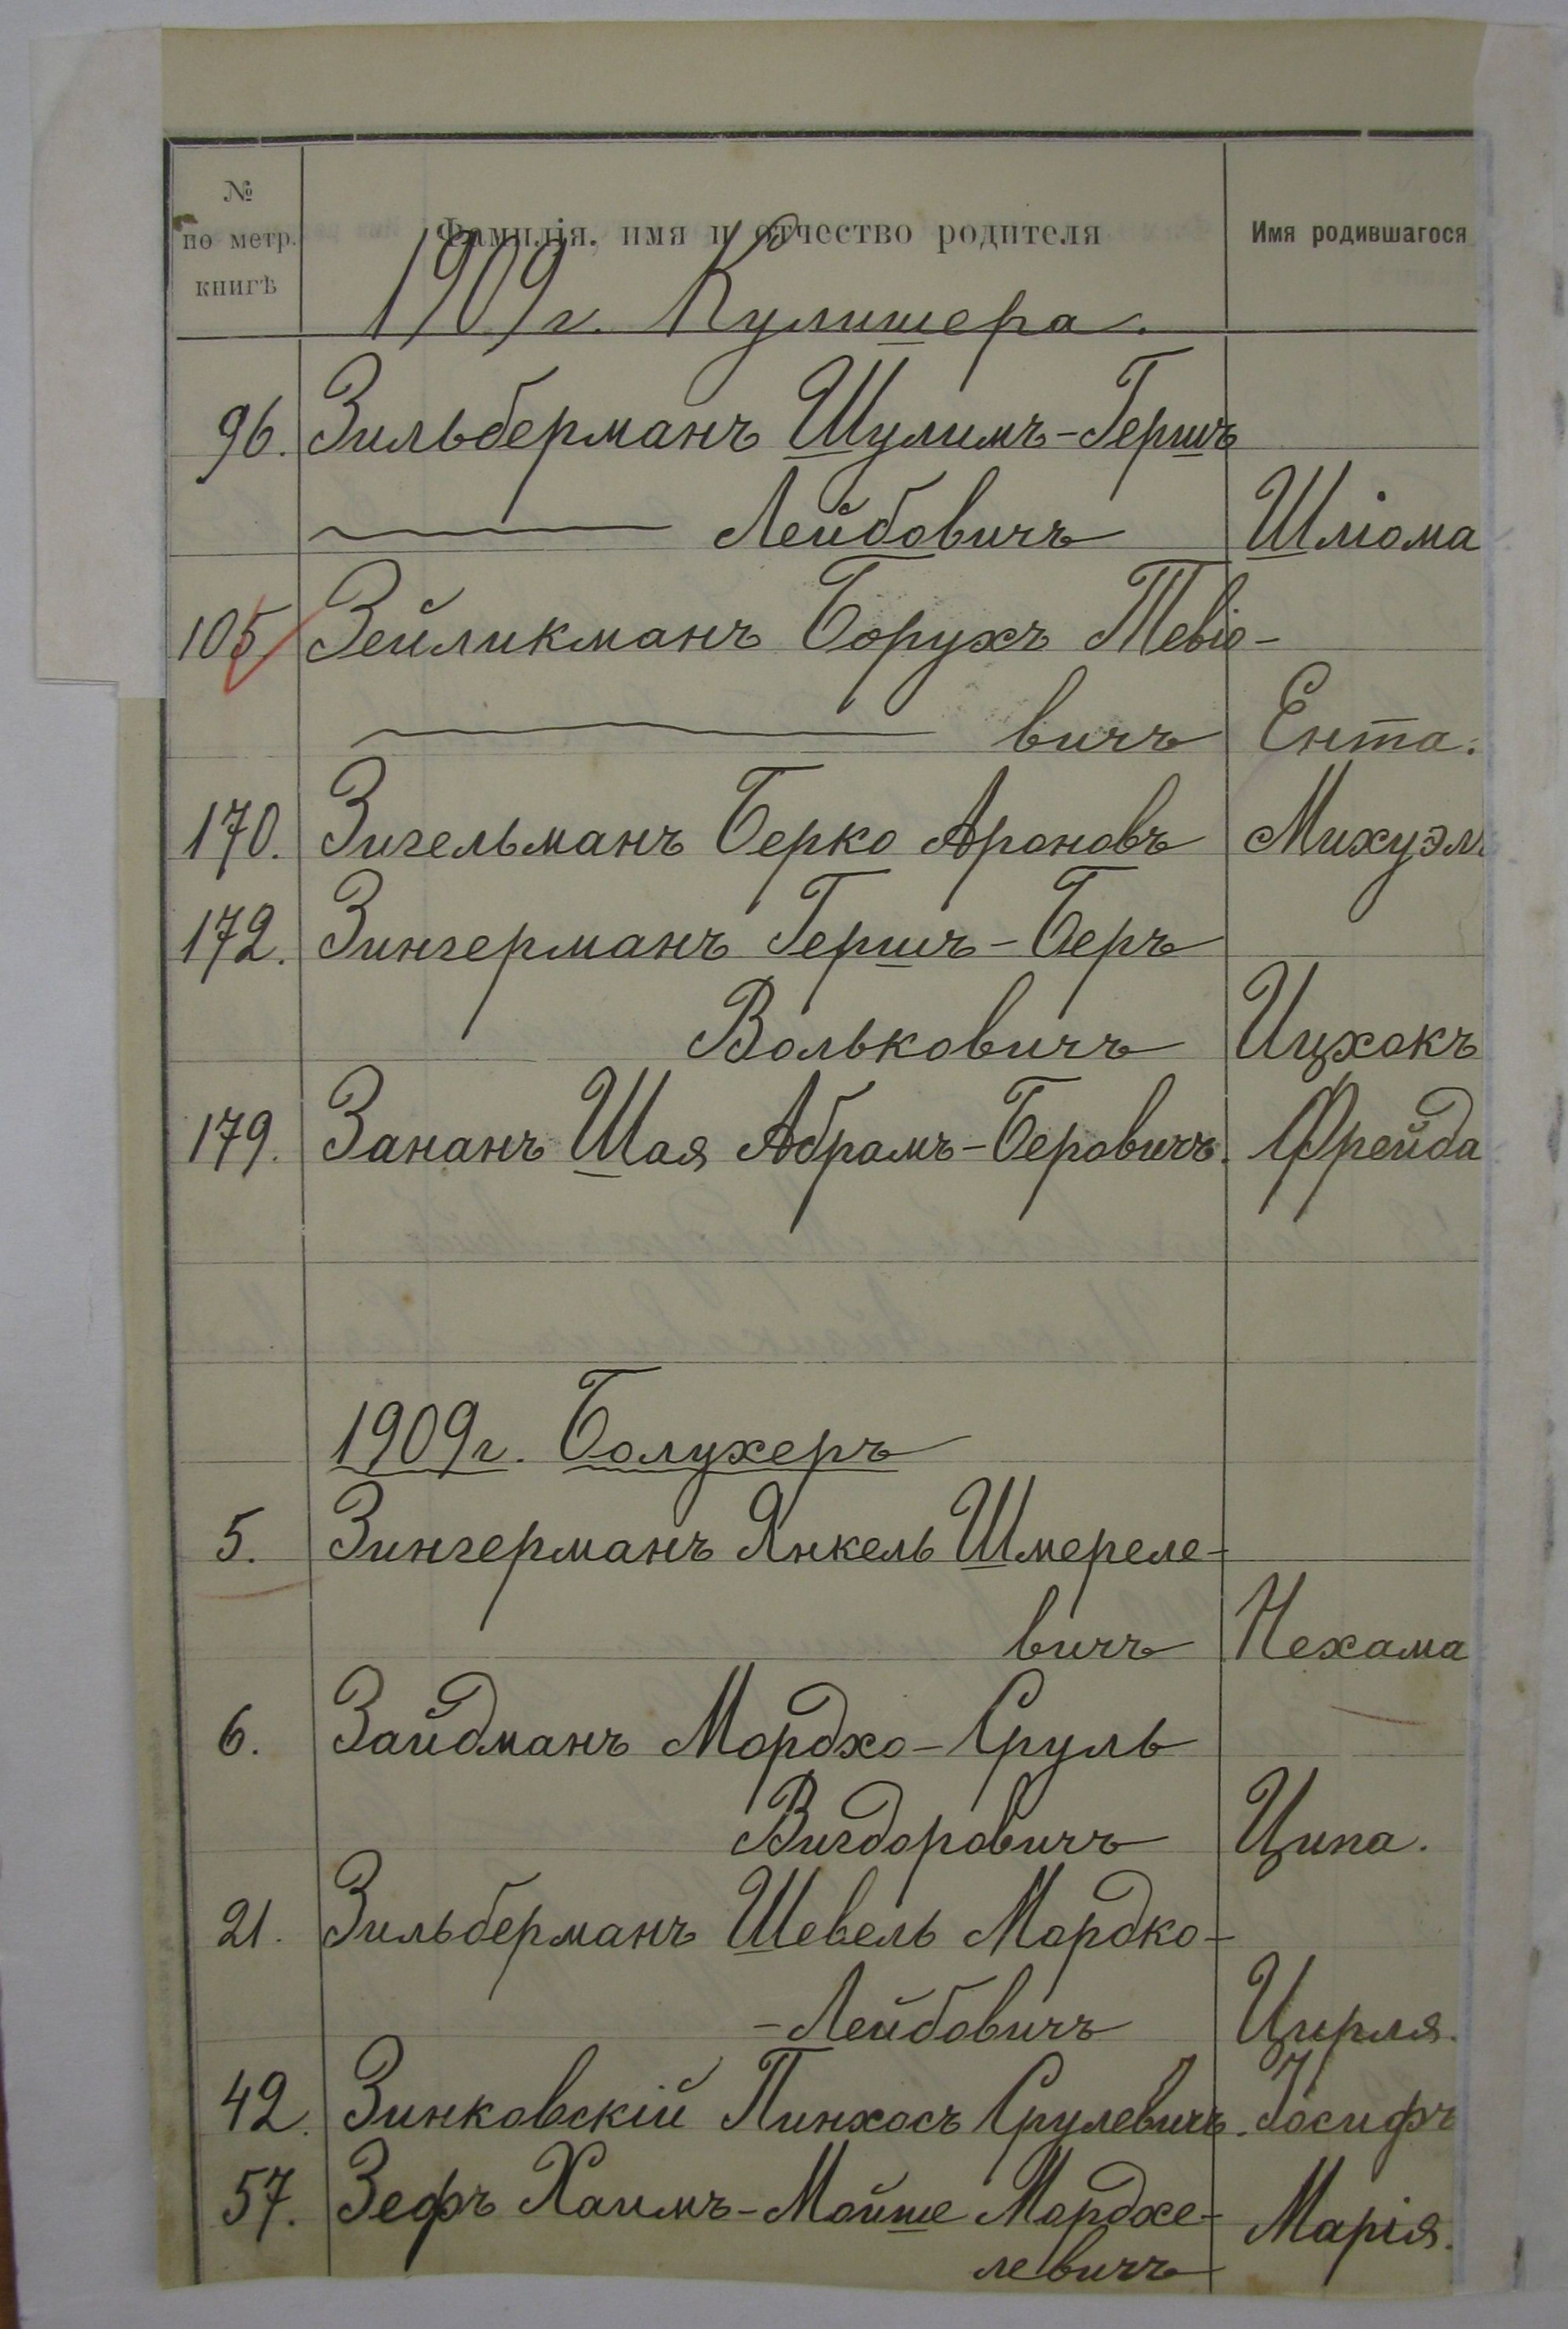 № по метр. книгѣ Фамилія, имя и отчество родителя Имя родившагося
1909 г. Кулишера.
96. Зильберманъ Шулимъ-Гершъ
Лейбовичъ Шліома
105 Зейликманъ Борухъ Тевіо-
вичъ Ента.
170. Зигельманъ Берко Ароновъ Михуэль
172. Зингерманъ Гершъ-Беръ
Вольковичъ Ицхокъ
179. Зананъ Шая Абрамъ-Беровичъ. Фрейда
1909 г. Болухеръ
5. Зингерманъ Янкель Шмереле-
вичъ Нехама
6. Зайдманъ Мордхо-Сруль
Вигдоровичъ Ципа.
21. Зильберманъ Шевель Мордко-
-Лейбовичъ Цирля.
42. Зинковскій Пинхосъ Срулевичъ. Іосифъ
57. Зефъ Хаимъ-Мойше Мордхе- Марія.
левичъ